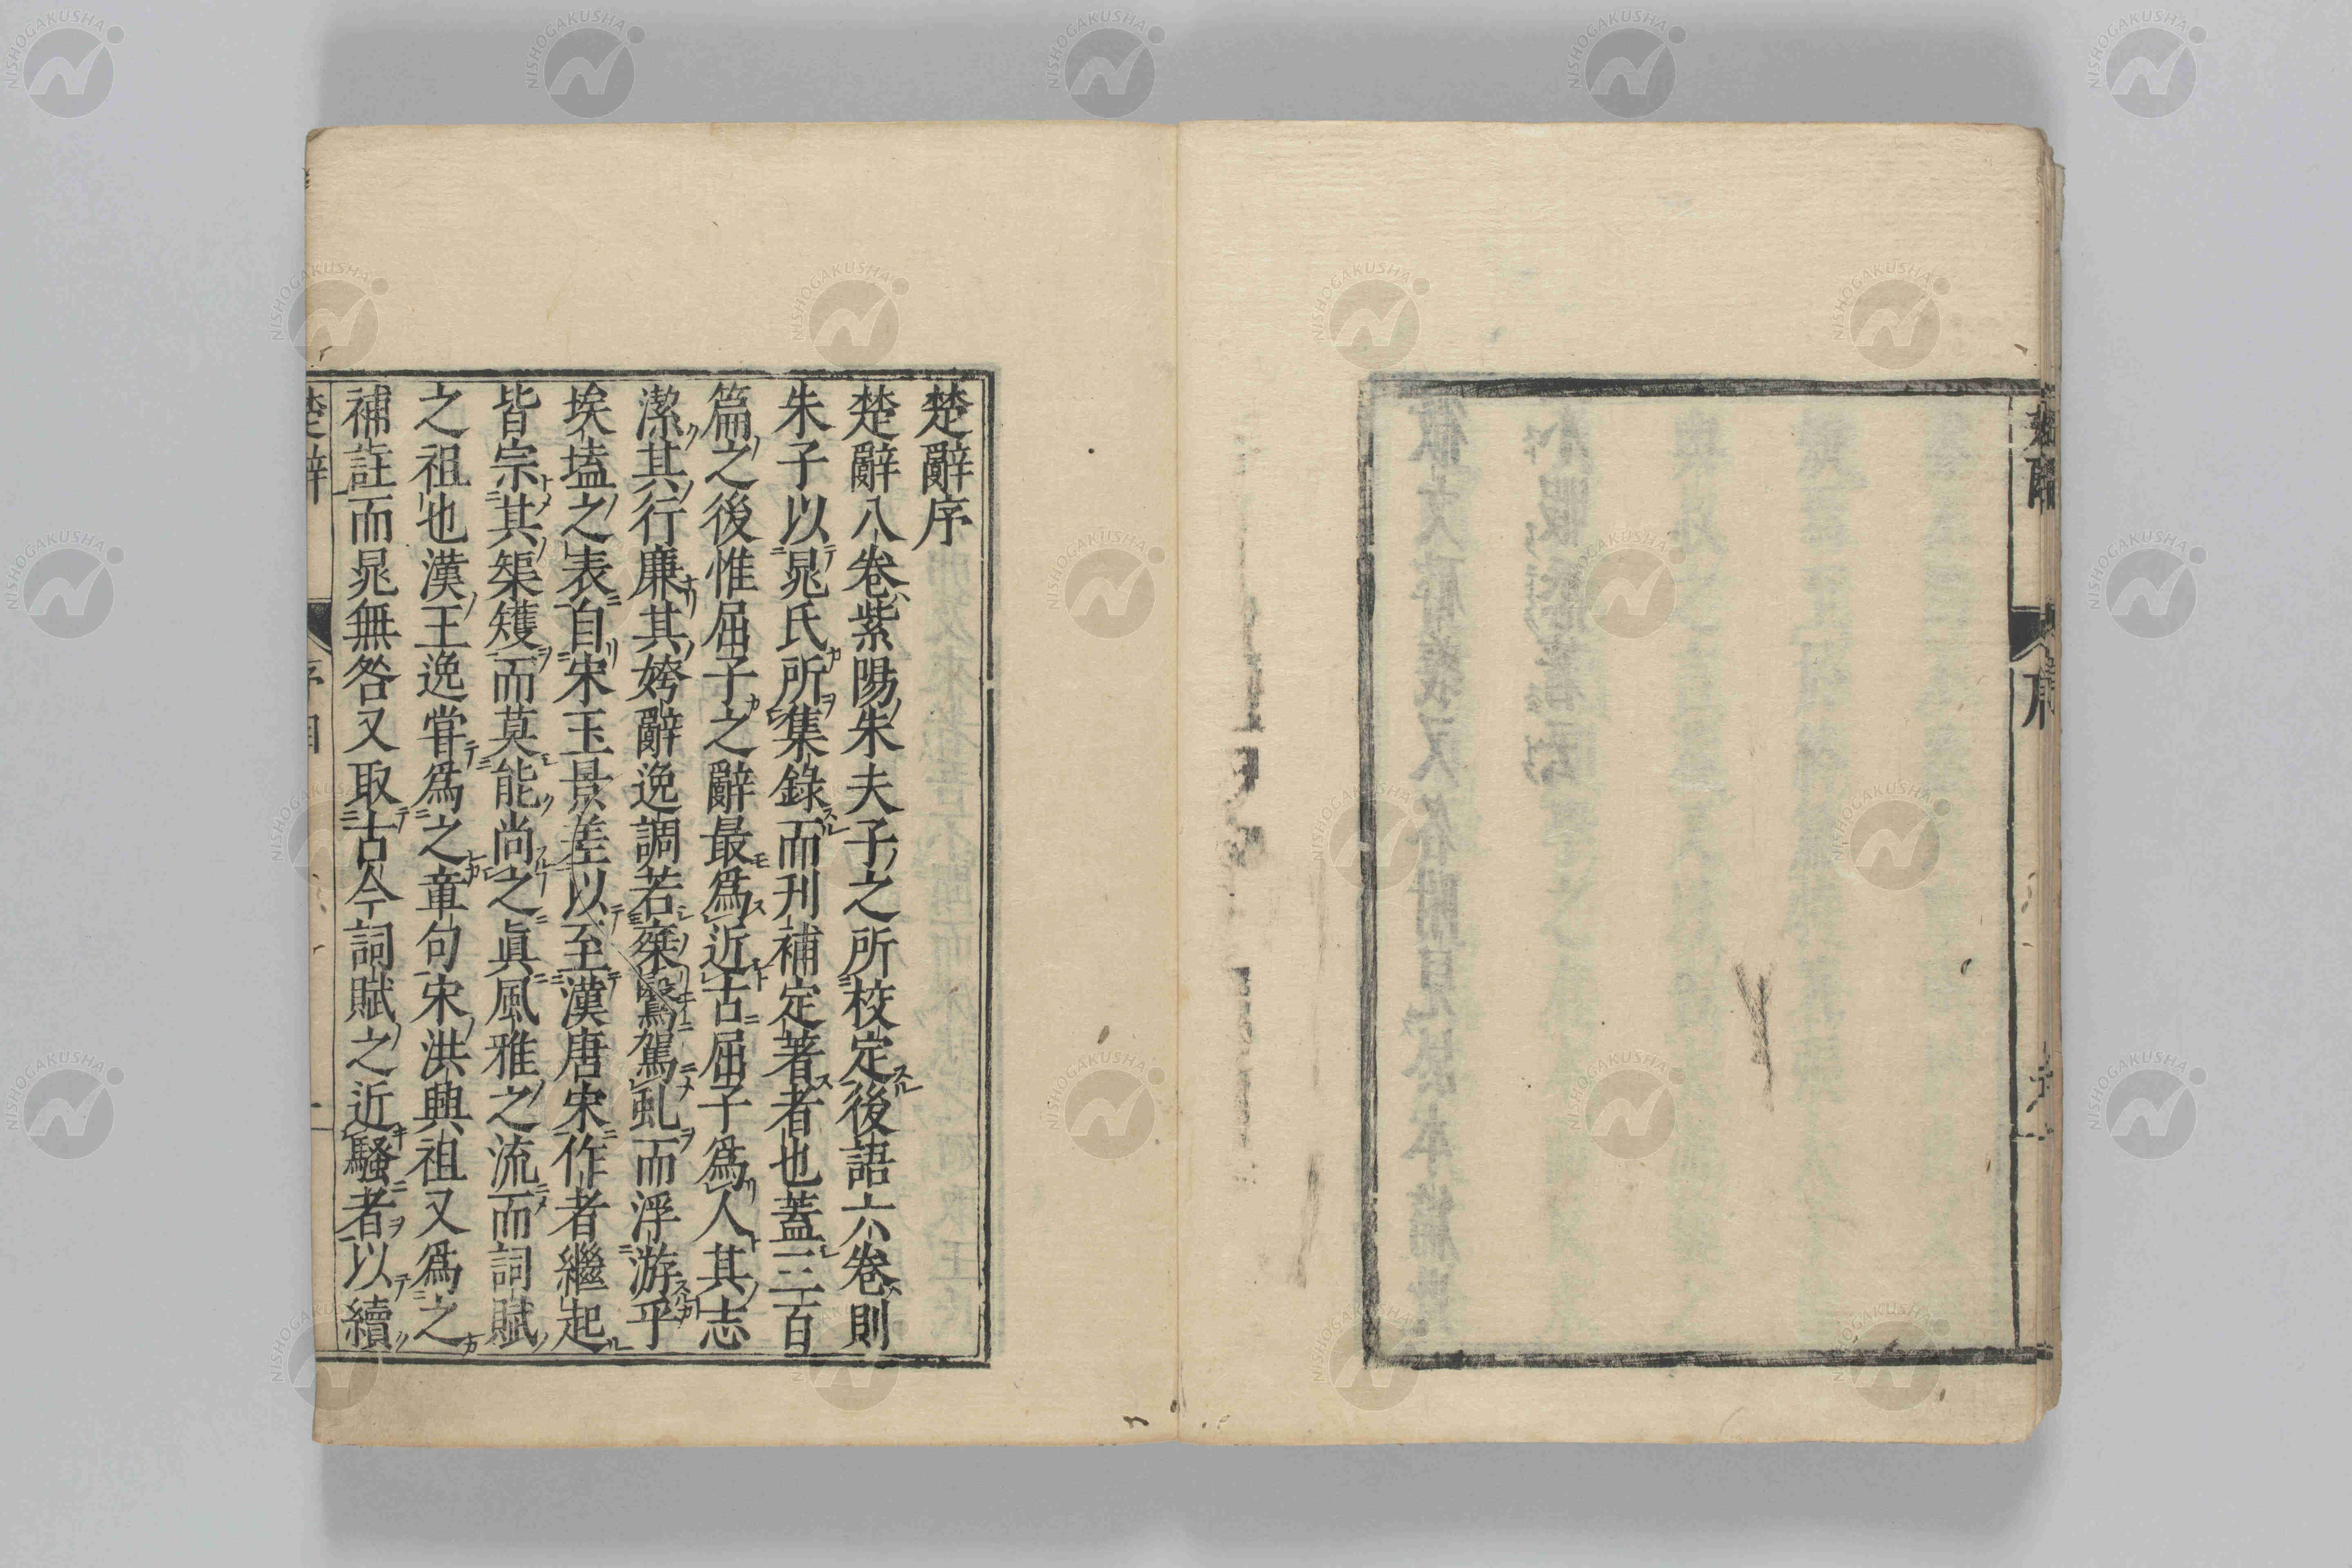 楚辭序
楚辭八卷紫陽朱夫子之所校定後語六卷則
朱子以晁氏所集錄而刊補定著者也蓋三百
篇之後惟屈子之辭最爲近古屈子爲人其志
潔其行廉其姱辭逸調若椉鷖駕虬而浮游乎
埃壒之表自宋玉景差以至漢唐宋作者繼起
皆宗其榘矱而莫能尚之眞風雅之流而詞賦
之祖也漢王逸甞爲之章句宋洪興祖又爲之
補註而晁無咎又取古今詞賦之近騷者以續
楚辭
序
NISHOGAKUSHA